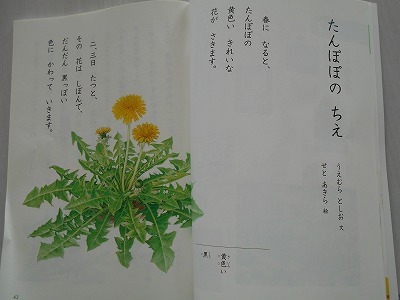 たんぽぽの ちえ
うえむら としお 文
せと あきら 絵
春に なると、
たんぽぽの
黄色い きれいな
花が さきます。
黄色い
黒
二、三日 たつと、
その 花は しぼんで、
だんだん 黒っぽい
色に かわって いきます。